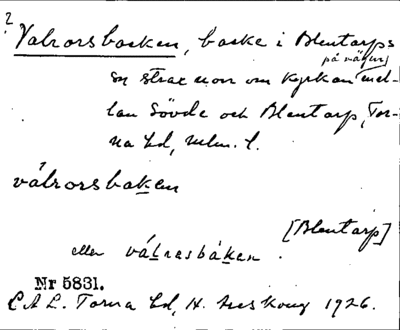 ?
Valrorsbacken, backe i Blentarps
på vägen
sn strax norr om kyrkan mel-
lan Sövde och Blentarp, Tor-
na hd, Mlm. l.
válrorsbaken
[Blentarp]
eller válrasbáken.
Nr 5831.
C A L. Torna hd, H. 1926.